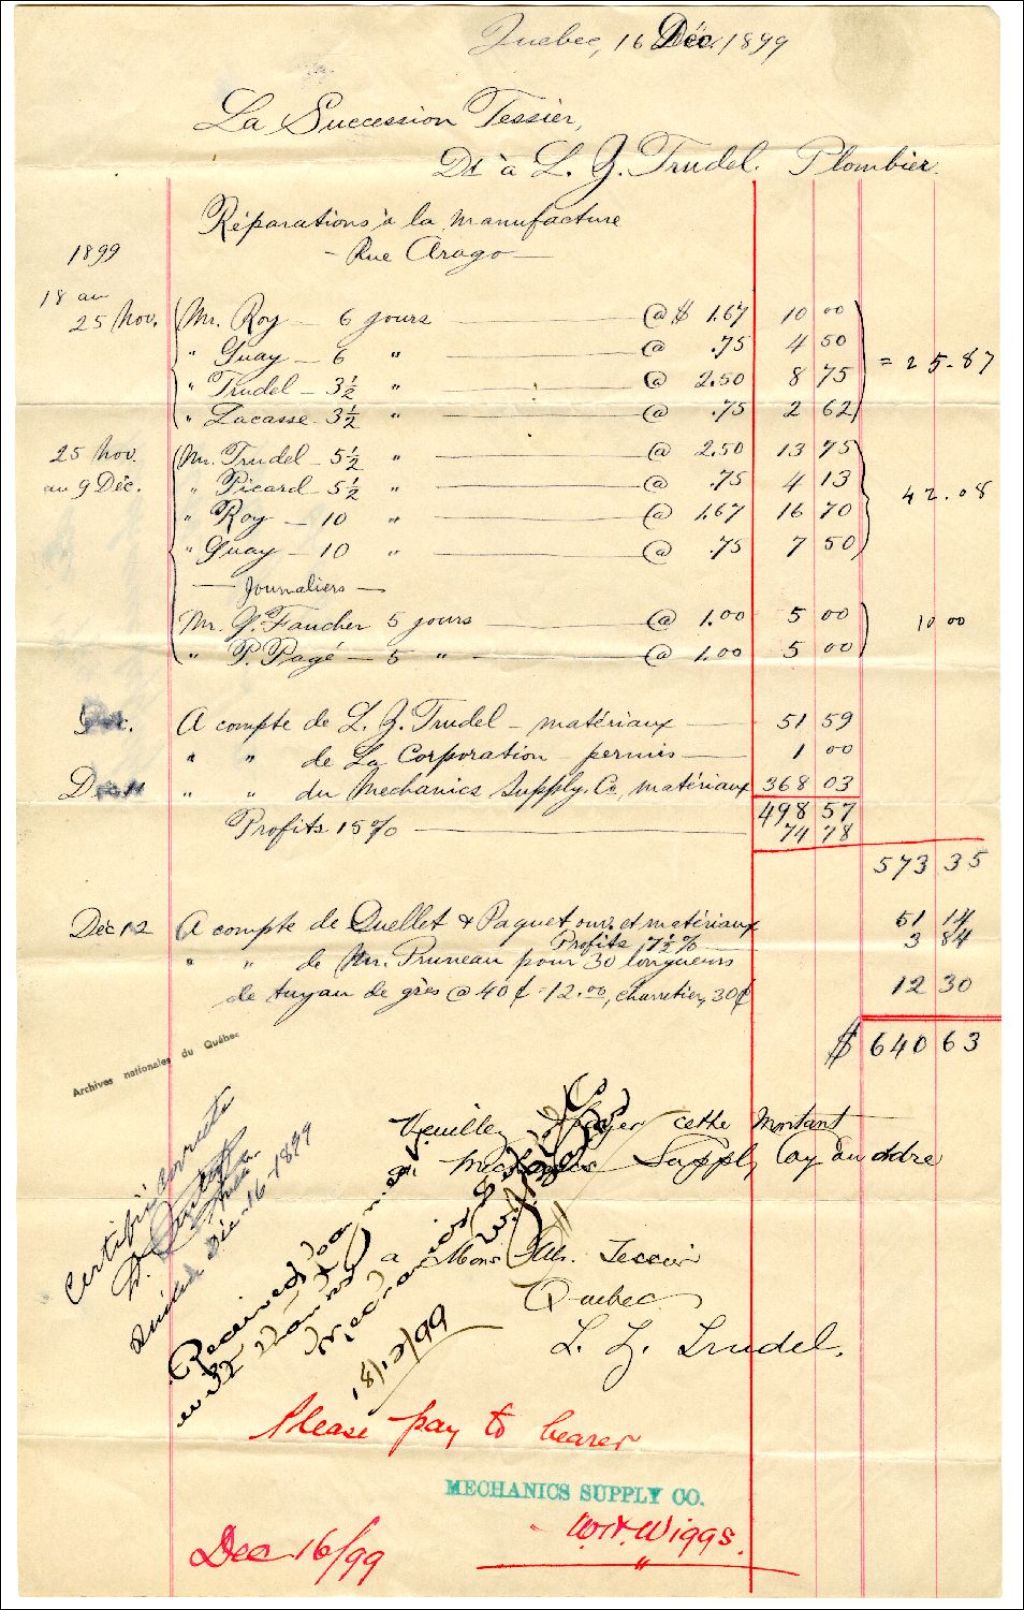 Quebec, 16 Déc. 1899
La Succession Tessier,
Dt à L. Z. Trudel. Plombier.
Réparations à la manufacture
1899 - Rue Arago -
18 au
25 Nov. Mr. Roy - 6 jours @ $ 1.67 10 00
" Guay - 6 " @ .75 4 50 = 25.87
" Trudel - 3½ " @ 2.50 8 75
" Lacasse - 3½ " @ .75 2 62
25 Nov. Mr. Trudel - 5½ " @ 2.50 13 75
au 9 Déc. " Picard - 5½ " @ .75 4 13 42.08
" Roy - 10 " @ 1.67 16 70
" Guay - 10 " @ .75 7 50
- Journaliers -
Mr. J. Faucher 5 jours @ 1.00 5 00 10 00
" P. Pagé - 5 " @ 1.00 5 00
A compte de L. Z. Trudel - matériaux 51 59
" " de La Corporation permis 1 00
" " du Mechanics Supply. Co, matériaux 368 03
498 57
Profits 15% 74 78
573 35
Déc 12 A compte de Ouellet & Paquet ouvr. et matériaux 51 14
Profits 7½% 3 84
" " de Mr. Pruneau pour 30 longueurs
de tuyau de grès @ 40¢ - 12.00, charretier, 30¢ 12 30
$ 640 63
Archives nationales du Québec
Certifié correcte
Déc-16-1899
Veuillez payer cette Montant
au Mechanics Supply Coy au ordre
a Mons Tessier
Quebec
L. Z. Trudel.
Received payment
Mechanics Supply Co
18/12/99
Please pay to bearer
MECHANICS SUPPLY CO.
W.H. Wiggs.
Dec 16/99